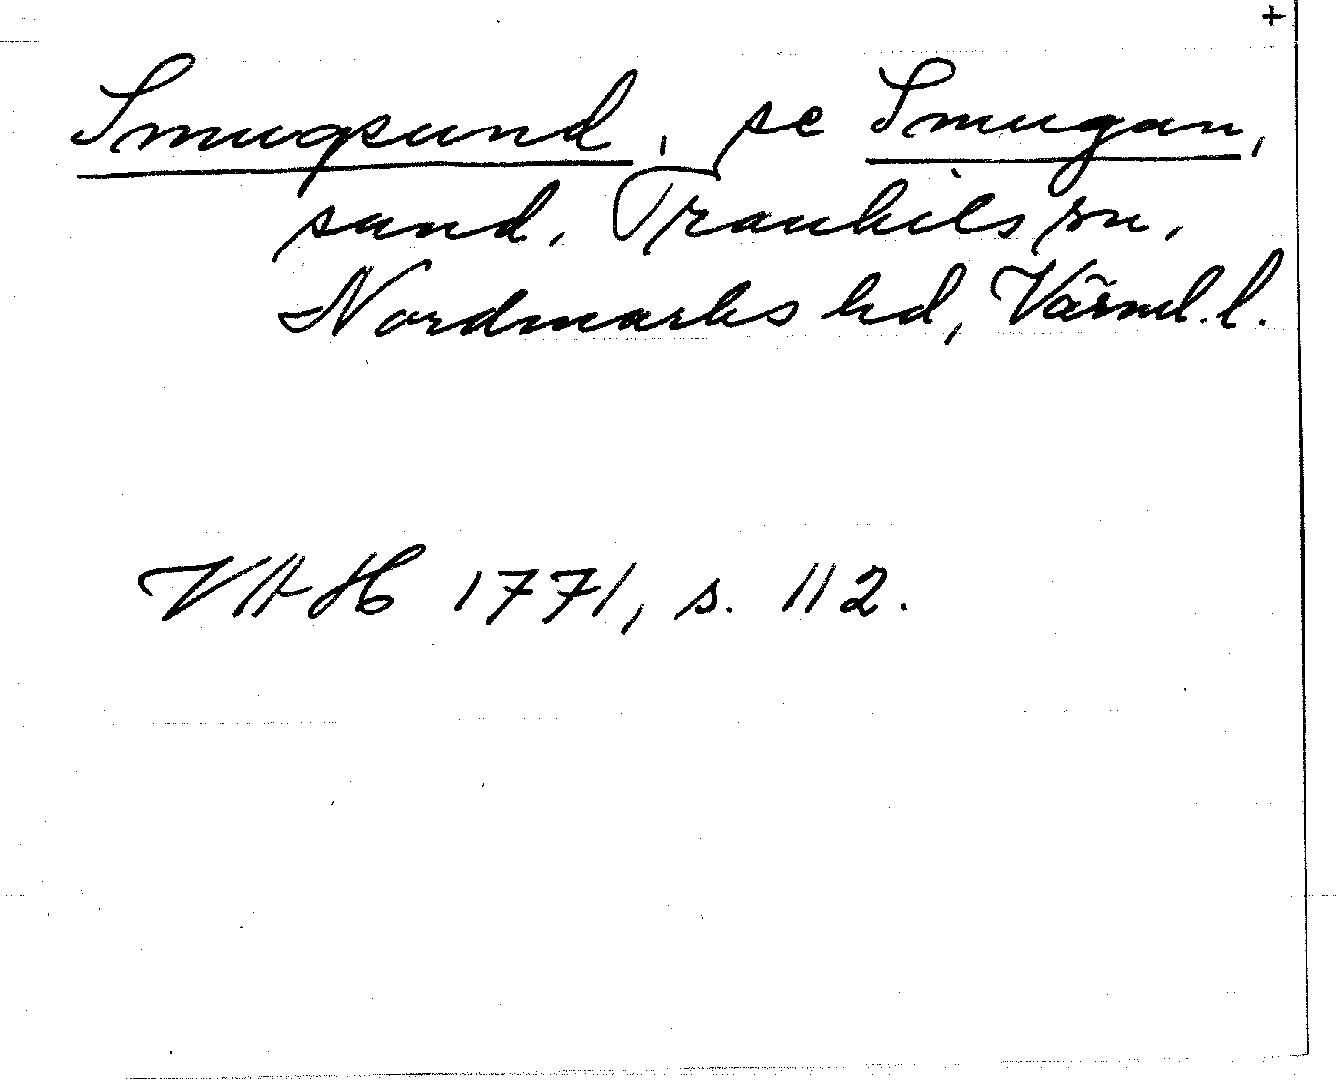 +
Smugsund, se Smugan,
sund, Trankils sn,
Nordmarks hd, Värml. l.
VAH 1771, s. 112.